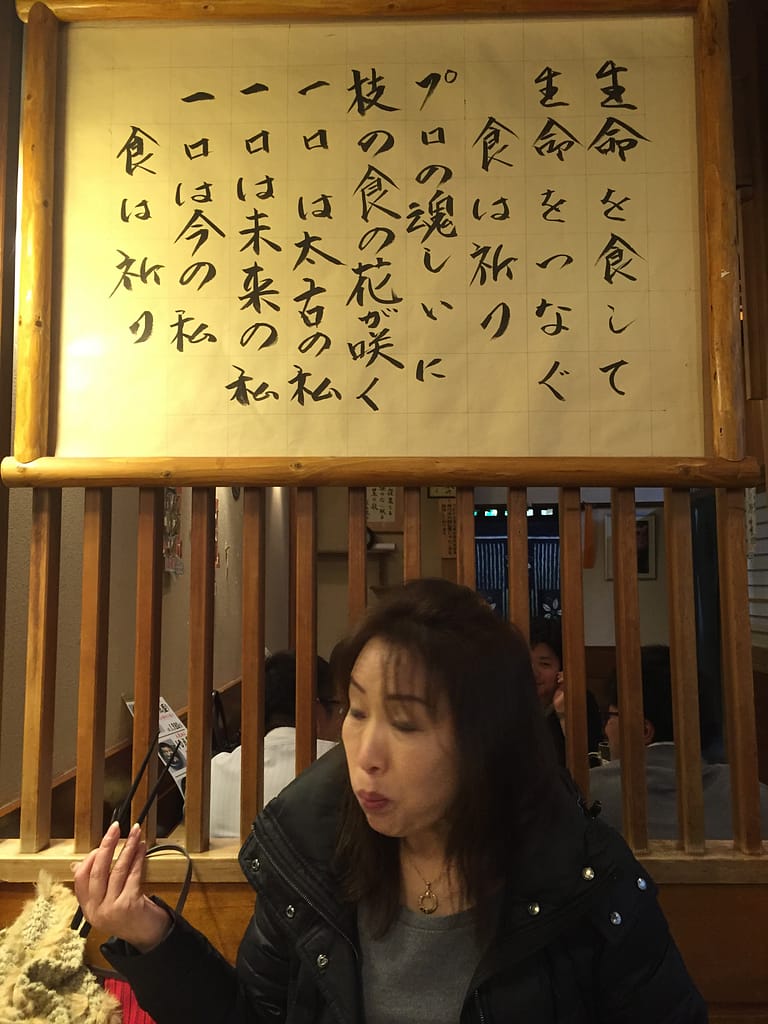 生命を食して
生命をつなぐ
食は祈り
プロの魂しいに
枝の食の花が咲く
一口は太古の私
一口は未来の私
一口は今の私
食は祈り